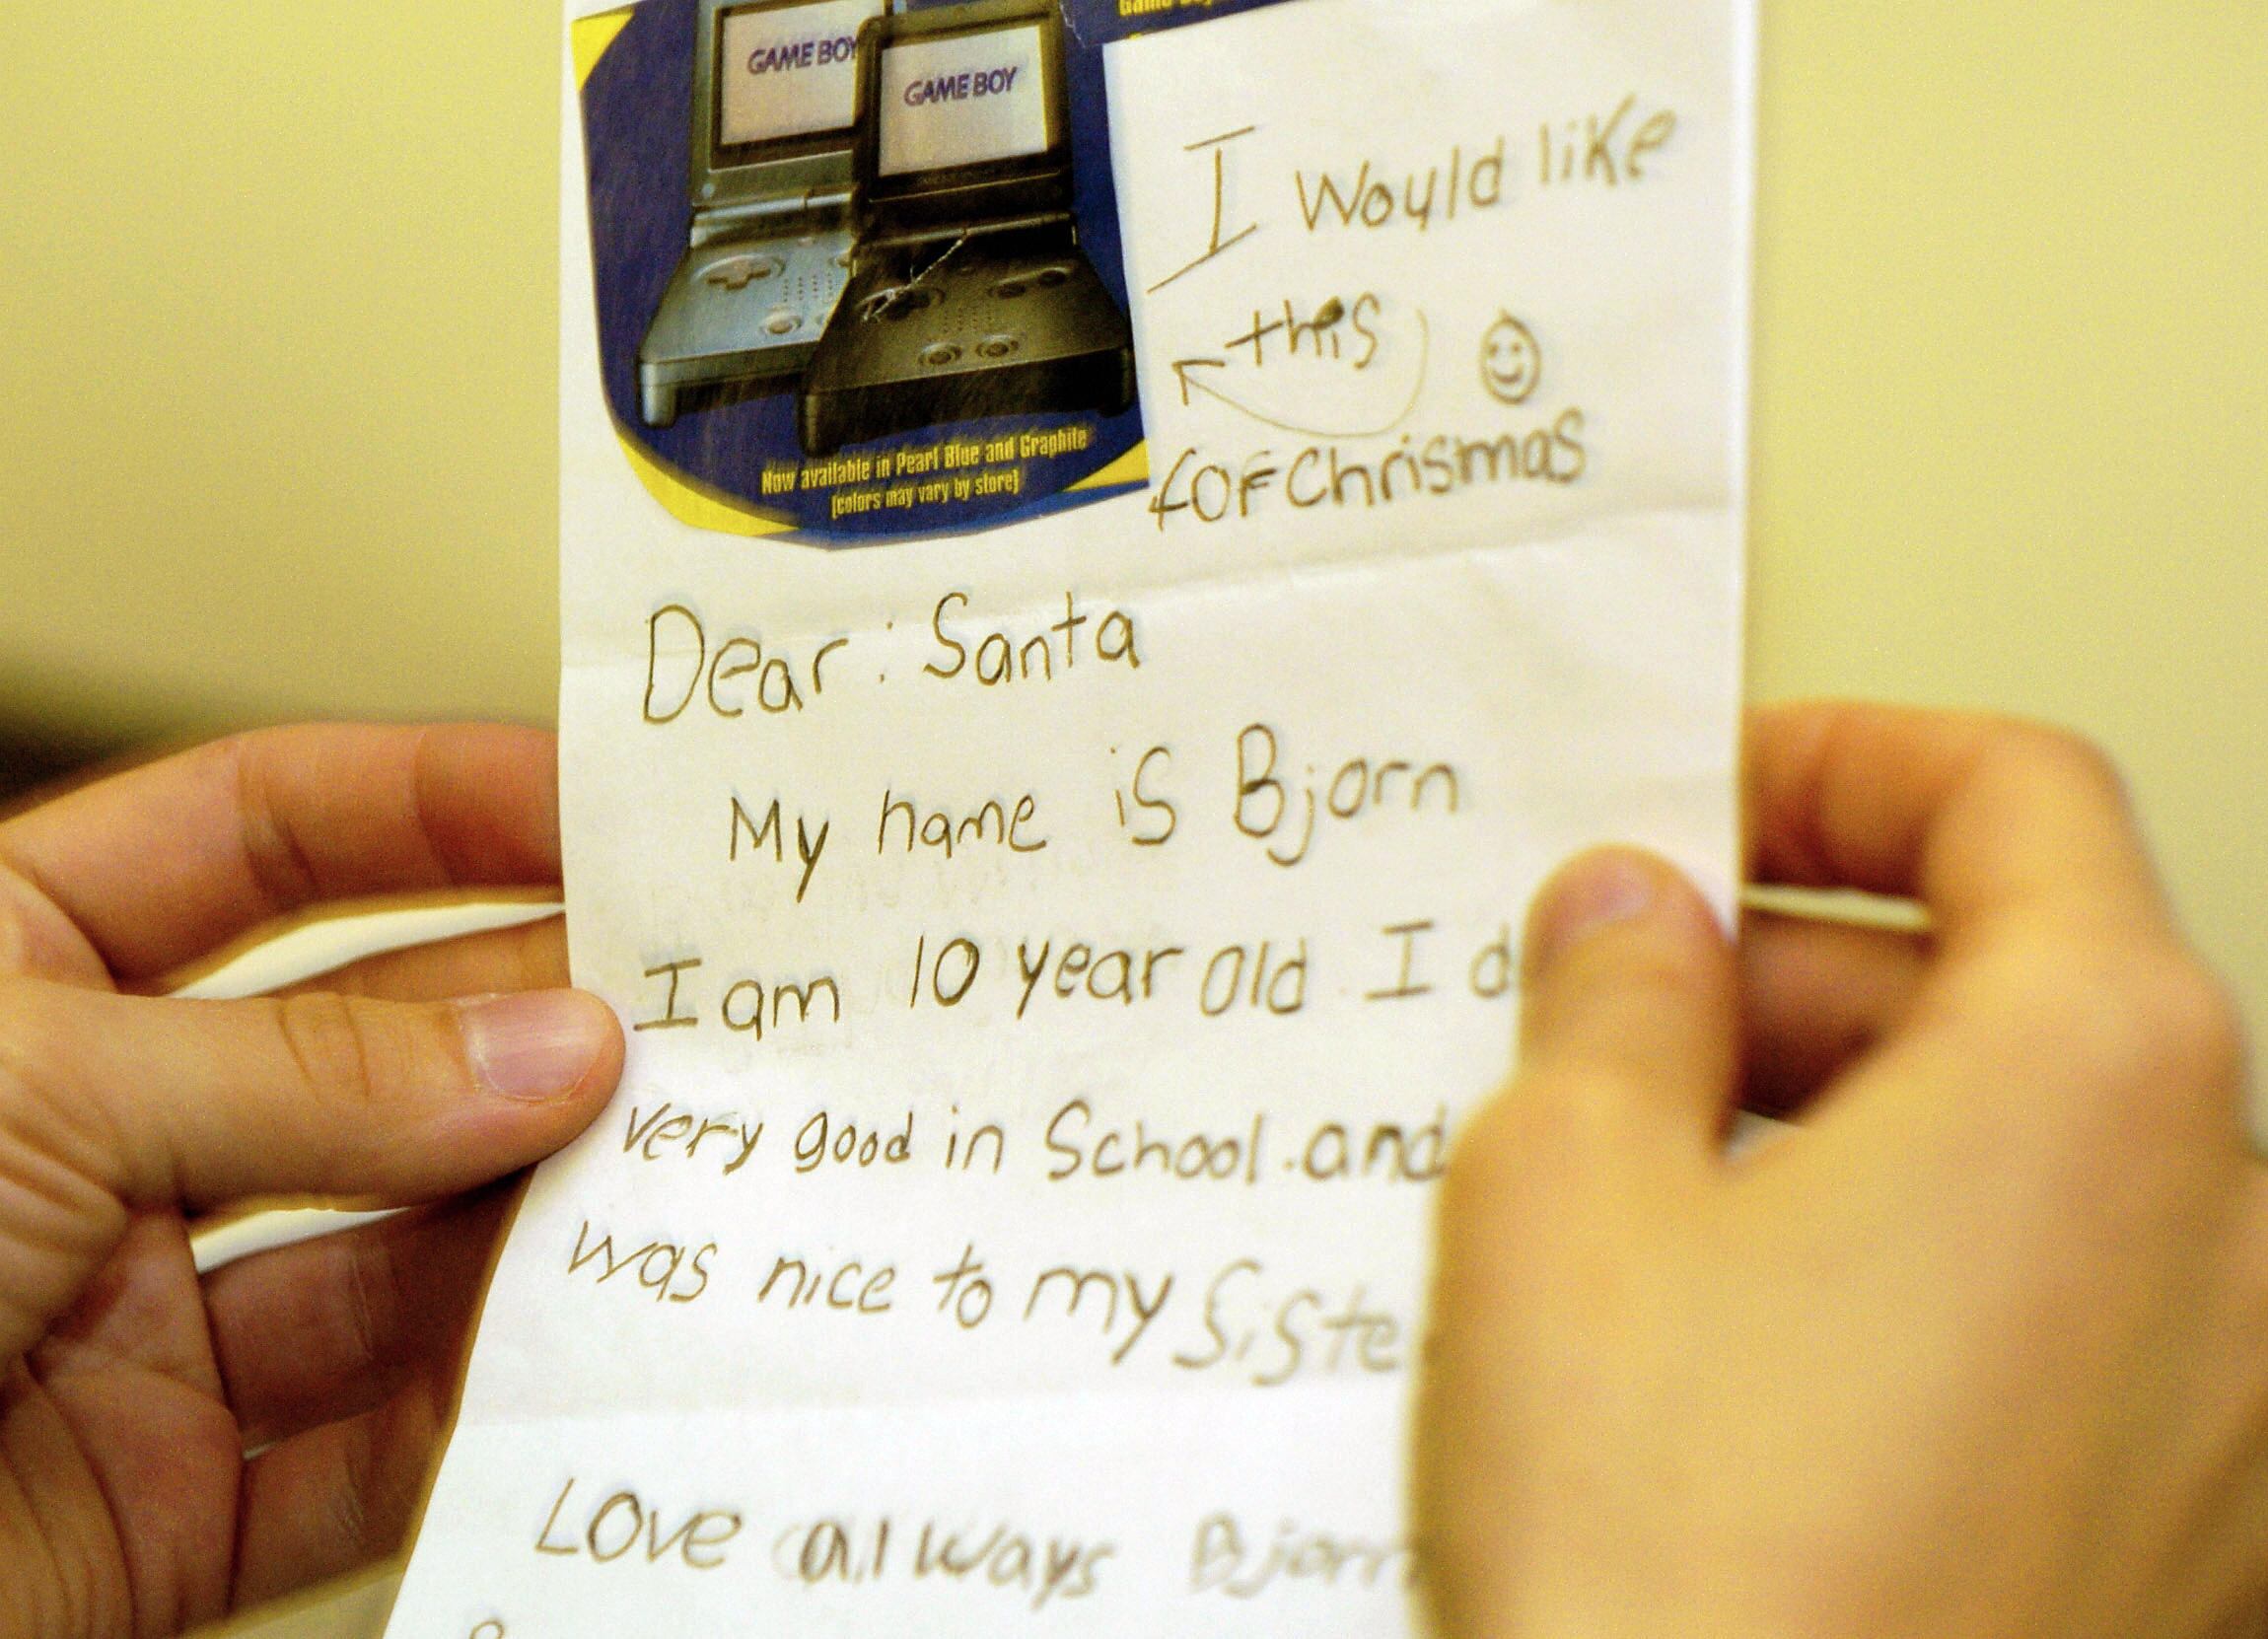 GAME BOY
GAME BOY
Now available in Pearl Blue and Graphite
(colors may vary by store)
I Would like
this
for Chrismas
Dear: Santa
My name is Bjorn
I am 10 year old I d
very good in School. and
was nice to my Siste
Love always Bjorn